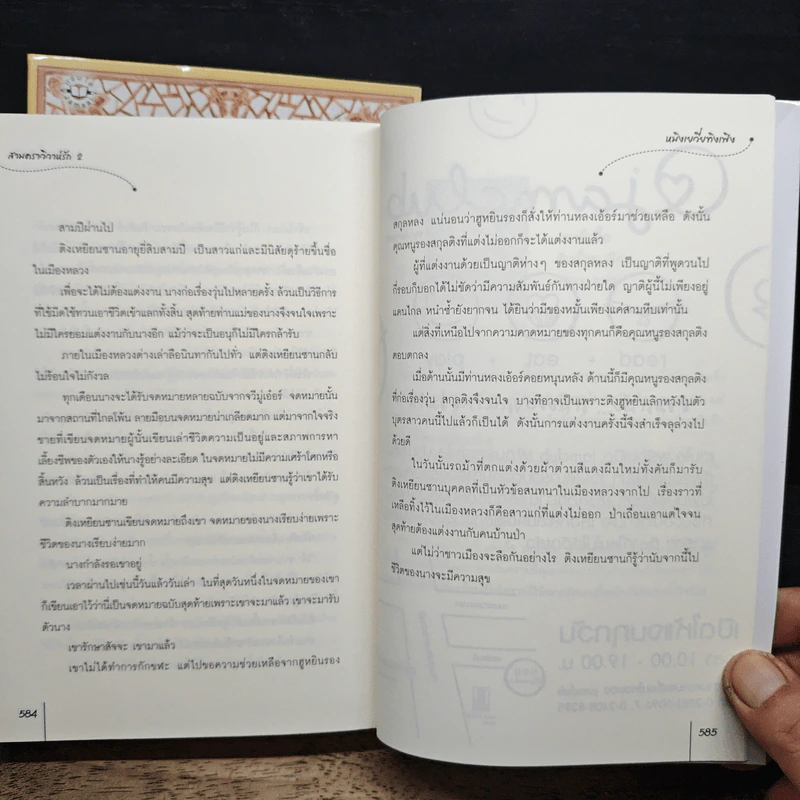 สามตราวิวาห์รัก 2
สามปีผ่านไป
ติงเหยียนซานอายุยี่สิบสามปี เป็นสาวแก่และมีนิสัยดุร้ายขึ้นชื่อ
ในเมืองหลวง
เพื่อจะได้ไม่ต้องแต่งงาน นางก่อเรื่องวุ่นไปหลายครั้ง ล้วนเป็นวิธีการ
ที่ใช้มีดใช้ทวนเอาชีวิตเข้าแลกทั้งสิ้น สุดท้ายท่านแม่ของนางจึงจนใจเพราะ
ไม่มีใครยอมแต่งงานกับนางอีก แม้ว่าจะเป็นอนุก็ไม่มีใครกล้ารับ
ภายในเมืองหลวงต่างเล่าลือนินทากันไปทั่ว แต่ติงเหยียนซานกลับ
ไม่ร้อนใจไม่กังวล
ทุกเดือนนางจะได้รับจดหมายหลายฉบับจากจวีมู่เอ๋อร์ จดหมายนั้น
มาจากสถานที่ไกลโพ้น ลายมือบนจดหมายน่าเกลียดมาก แต่มาจากใจจริง
ชายที่เขียนจดหมายผู้นั้นเขียนเล่าชีวิตความเป็นอยู่และสภาพการหา
เลี้ยงชีพของตัวเองให้นางรู้อย่างละเอียด ในจดหมายไม่มีความเศร้าโศกหรือ
สิ้นหวัง ล้วนเป็นเรื่องที่ทำให้คนมีความสุข แต่ติงเหยียนซานรู้ว่าเขาได้รับ
ความลำบากมากมาย
ติงเหยียนซานเขียนจดหมายถึงเขา จดหมายของนางเรียบง่ายเพราะ
ชีวิตของนางเรียบง่ายมาก
นางกำลังรอเขาอยู่
เวลาผ่านไปเช่นนี้วันแล้ววันเล่า ในที่สุดวันหนึ่งในจดหมายของเขา
ก็เขียนเอาไว้ว่านี่เป็นจดหมายฉบับสุดท้ายเพราะเขาจะมาแล้ว เขาจะมารับ
ตัวนาง
เขารักษาสัจจะ เขามาแล้ว
เขาไม่ได้ทำการกักขฬะ แต่ไปขอความช่วยเหลือจากฮูหยินรอง
584
หมิงเยวี่ยทิงเฟิง
สกุลหลง แน่นอนว่าฮูหยินรองก็สั่งให้ท่านหลงเอ้อร์มาช่วยเหลือ ดังนั้น
คุณหนูรองสกุลติงที่แต่งไม่ออกก็จะได้แต่งงานแล้ว
ผู้ที่แต่งงานด้วยเป็นญาติห่างๆ ของสกุลหลง เป็นญาติที่พูดวนไป
กี่รอบก็บอกได้ไม่ชัดว่ามีความสัมพันธ์กันทางฝ่ายใด ญาติผู้นี้ไม่เพียงอยู่
แดนไกล หนำซ้ำยังยากจน ได้ยินว่ามีของหมั้นเพียงแค่สามหีบเท่านั้น
แต่สิ่งที่เหนือไปจากความคาดหมายของทุกคนก็คือคุณหนูรองสกุลติง
ตอบตกลง
เมื่อด้านนั้นมีท่านหลงเอ้อร์คอยหนุนหลัง ด้านนี้ก็มีคุณหนูรองสกุลติง
ที่ก่อเรื่องวุ่น สกุลติงจึงจนใจ บางทีอาจเป็นเพราะติงฮูหยินเลิกหวังในตัว
บุตรสาวคนนี้ไปแล้วก็เป็นได้ ดังนั้นการแต่งงานครั้งนี้จึงสำเร็จลุล่วงไป
ด้วยดี
ในวันนั้นรถม้าที่ตกแต่งด้วยผ้าต่วนสีแดงผืนใหม่ทั้งคันก็มารับ
ติงเหยียนซานบุคคลที่เป็นหัวข้อสนทนาในเมืองหลวงจากไป เรื่องราวที่
เหลือทิ้งไว้ในเมืองหลวงก็คือสาวแก่ที่แต่งไม่ออก ป่าเถื่อนเอาแต่ใจจน
สุดท้ายต้องแต่งงานกับคนบ้านป่า
แต่ไม่ว่าชาวเมืองจะลือกันอย่างไร ติงเหยียนซานก็รู้ว่านับจากนี้ไป
ชีวิตของนางจะมีความสุข
585